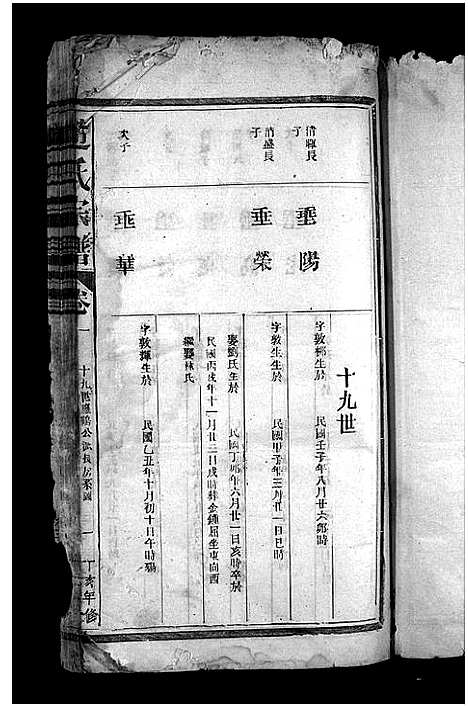 十九世
清緜長子
垂陽
字敦郁生於 民國壬子年八月廿六卯時
清盛長子
垂榮
字敦生生於 民國甲子年三月廿一日巳時
娶劉氏生於 民國丁卯年六月廿二日亥時卒於
民國丙戌年十一月廿三日戌時葬金鍾屈坐東向西
繼娶林氏
次子
垂華
字敦輝生於 民國乙丑年十月初十日午時殤
氏宗譜 卷一
丁亥年修